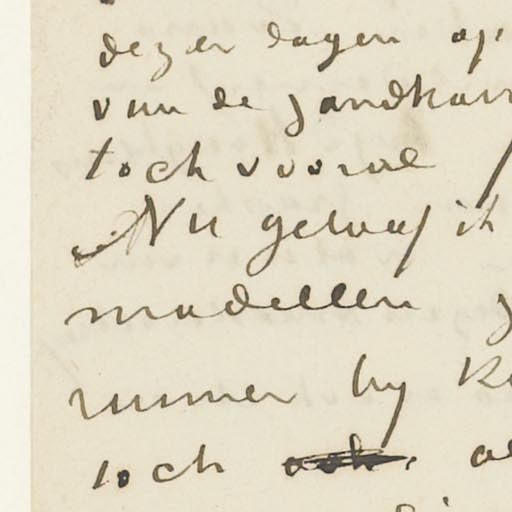 dezer dagen op
van de zandkar
toch vooral
Nu geloof ik
modellen z
ruimer by k
toch ook. al